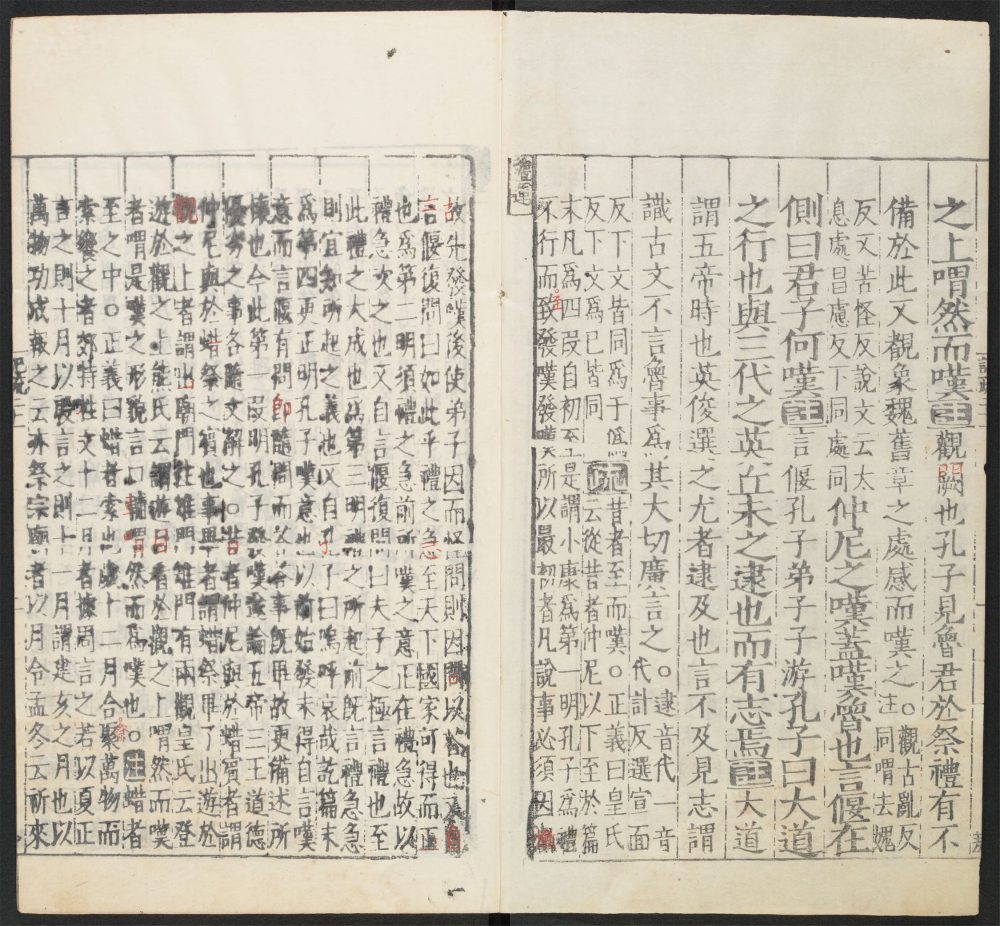 之上喟然而嘆注觀闕也孔子見魯君於祭禮有不
備於此又觀象魏舊章之處感而嘆之
〇觀古亂反
注同喟去媿
反又苦怪反說文云太
息處昌慮反下同處同
仲尼之嘆蓋嘆魯也言偃在
側曰君子何嘆注言偃孔子弟子子游孔子曰大道
之行也與三代之英丘未之逮也而有志焉注大道
謂五帝時也英俊選之尤者逮及也言不及見志謂
識古文不言魯事爲其大切廣言之
〇逮音代一音
代計反選宣面
反下文皆同爲于僞
反下文爲已皆同
疏
昔者至而嘆〇正義曰皇氏
云從昔者仲尼以下至於篇
末凡爲四段自初至是謂小康爲第一明孔子爲禮
不行而致發嘆發嘆所以最初者凡說事必須因漸
故先發嘆後使弟子因而怪問則因問以荅也又自
言偃復問曰如此乎禮之急至天下國家可得而正
也爲第二明須禮之急前所嘆之意正在禮急故以
禮急次之也又自言偃復問曰夫子之極言禮也至
此禮之大成也爲第三明禮之所起前既言禮急急
則宜知所起之義也又自孔子曰嗚呼哀哉訖篇末
爲第四更正明孔子嘆意也以前始發未得自言嘆
意而言偃有問即隨問而荅荅事既畢故更備述所
懷也今此第一段明孔子發嘆遂論五帝三王道德
優劣之事各隨文解之〇昔者仲尼與於蜡賓者謂
仲尼與於蜡祭之賓也事畢者謂蜡祭畢了出遊於
觀之上者謂出廟門往雉門雉門有兩觀皇氏云登
遊於觀之上熊氏云謂遊目看於觀之上喟然而嘆
者喟是嘆之形貌言口輒喟然而爲嘆也〇注蜡者
至之中〇正義曰蜡者索也歲十二月合聚萬物而
索饗之者郊特牲文十二月者據周言之若以夏正
言之則十月以殷言之則十一月謂建亥之月也以
萬物功成報之云亦祭宗廟者以月令孟冬云所來